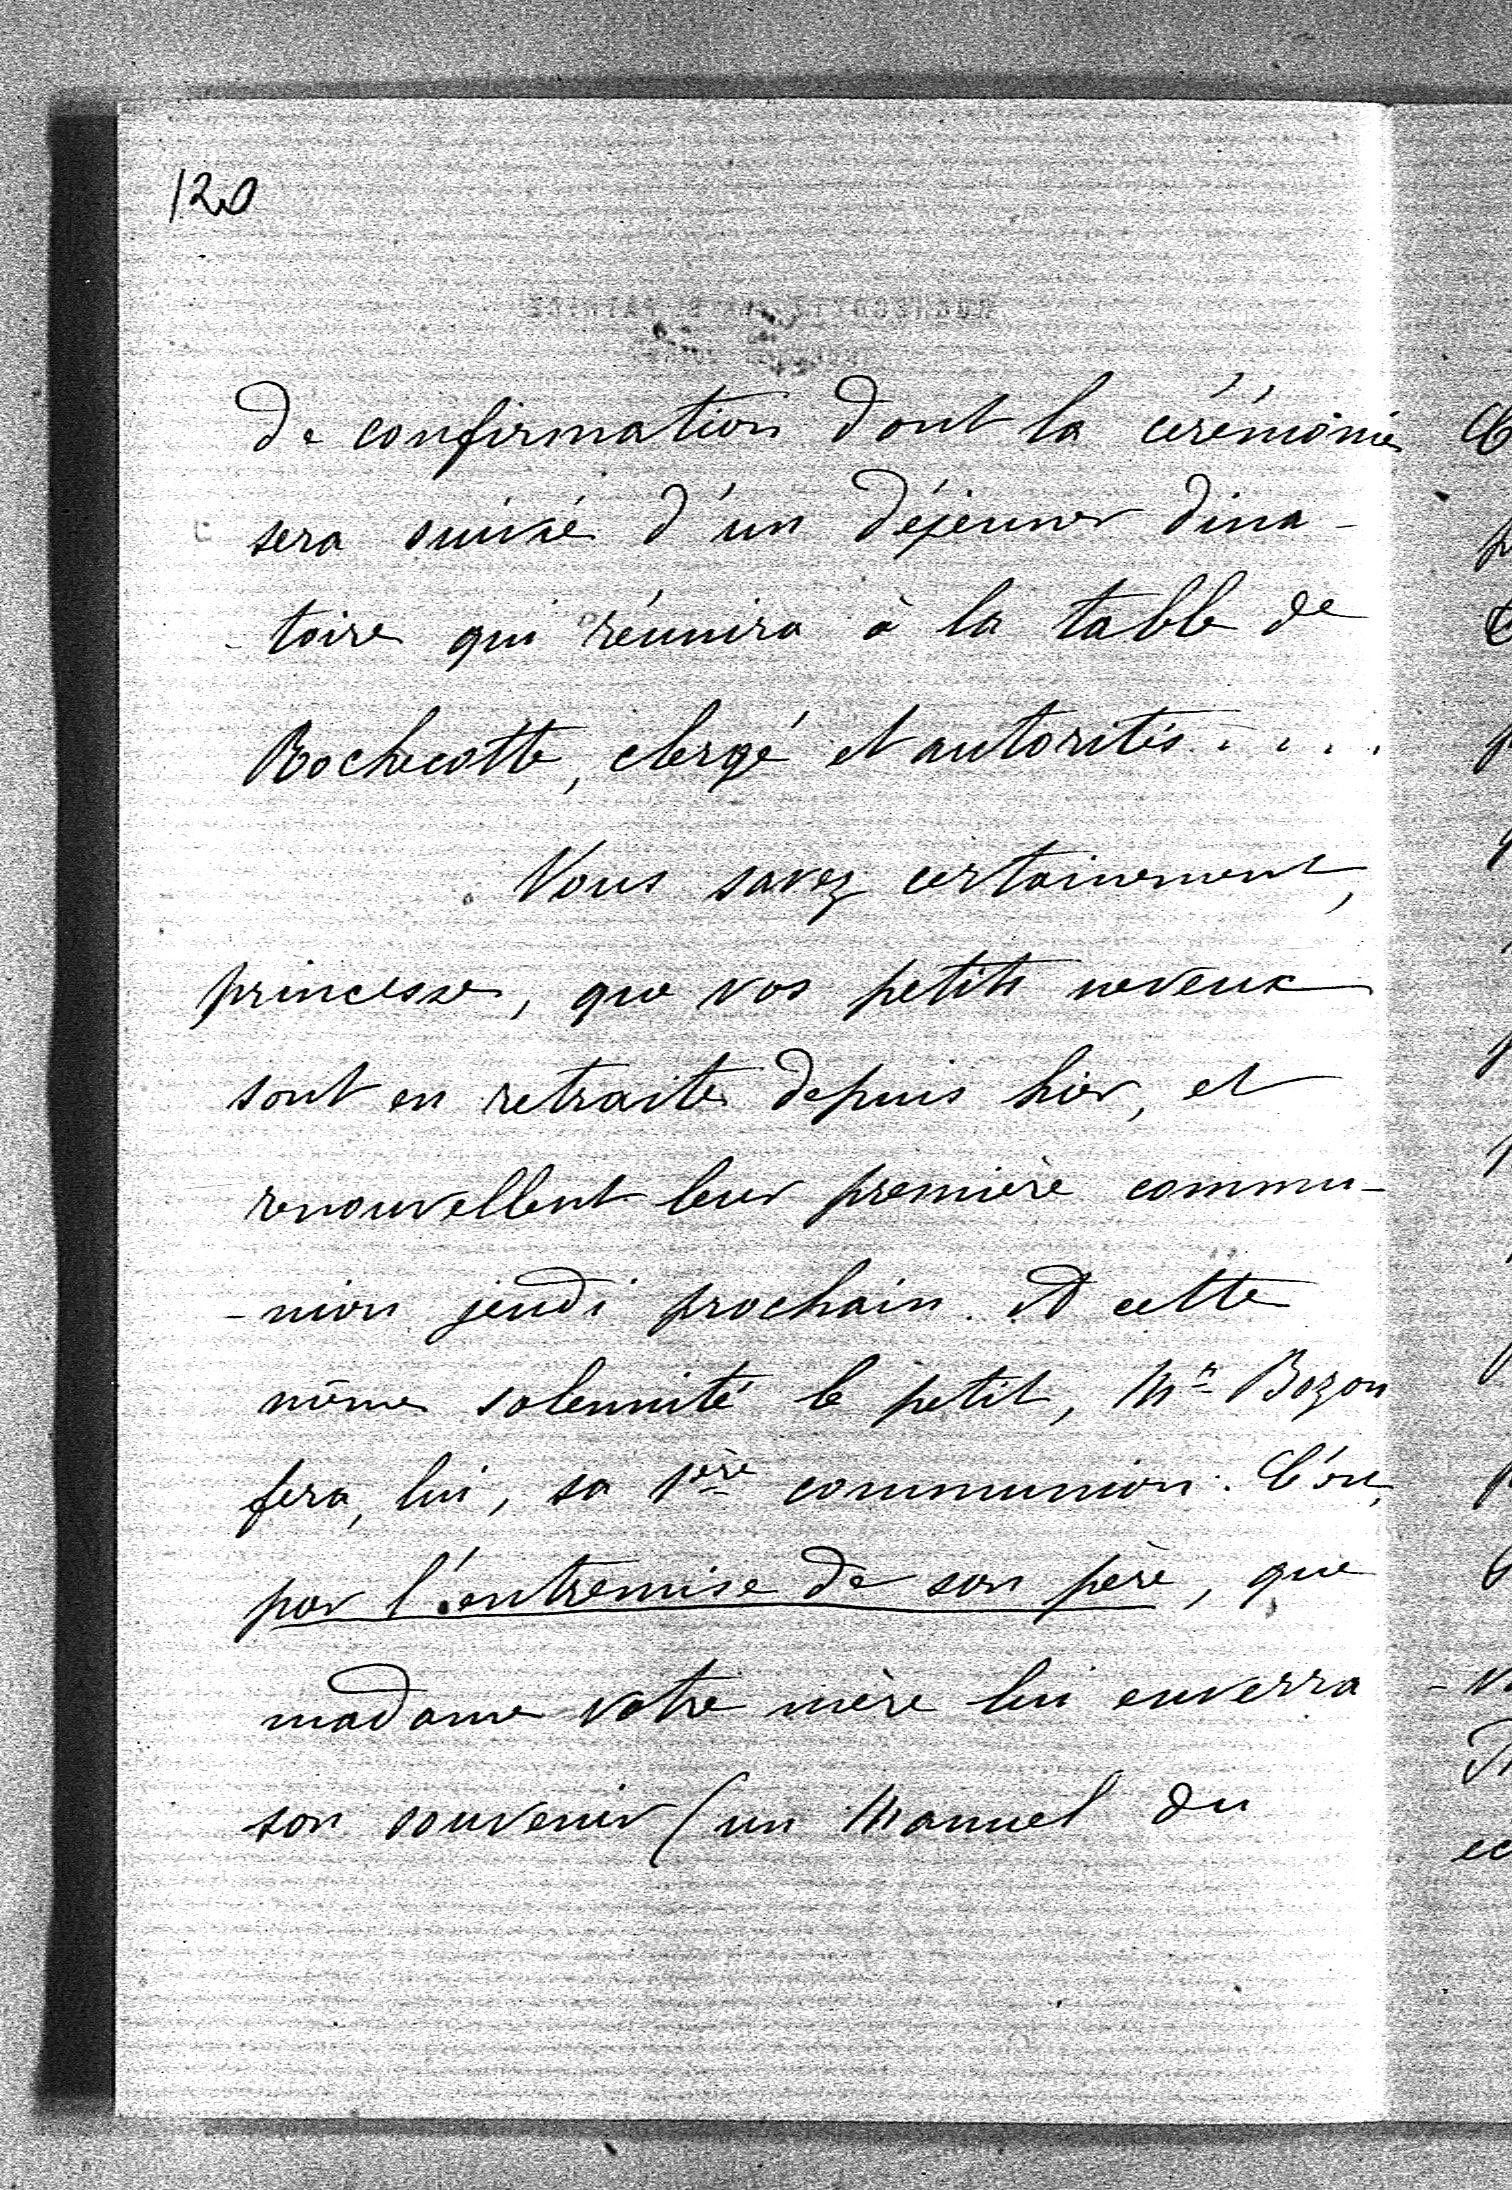 120
de confirmation dont la cérémonie
sera suivie d'un déjeuner dina-
-toire qui réunira à la table de
Rochecotte, clergé et autorités....
Vous savez certainement,
princesse, que vos petits neveux
sont en retraite depuis hier, et
renouvellent leur première commu-
-nion jeudi prochain. A cette
même solennité le petit, Mr Bozon
fera, lui, sa 1ère communion. C'est,
par l'entremise de son père, que
madame votre mère lui enverra
son souvenir (un Manuel du